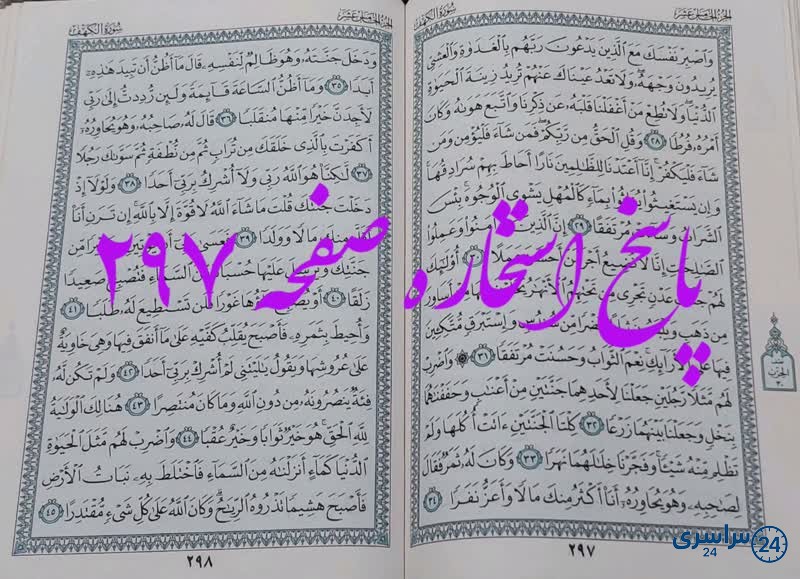 الجزء الخامس عشر
سورة الكهف
وَاصْبِرْ نَفْسَكَ مَعَ الَّذِينَ يَدْعُونَ رَبَّهُم بِالْغَدَوٰةِ وَالْعَشِيِّ
يُرِيدُونَ وَجْهَهُ وَلَا تَعْدُ عَيْنَاكَ عَنْهُمْ تُرِيدُ زِينَةَ الْحَيَوٰةِ
الدُّنْيَا وَلَا تُطِعْ مَنْ أَغْفَلْنَا قَلْبَهُ عَن ذِكْرِنَا وَاتَّبَعَ هَوَىٰهُ وَكَانَ
أَمْرُهُ فُرُطًا ٢٨ وَقُلِ الْحَقُّ مِن رَّبِّكُمْ فَمَن شَاءَ فَلْيُؤْمِن وَمَن
شَاءَ فَلْيَكْفُرْ إِنَّا أَعْتَدْنَا لِلظَّٰلِمِينَ نَارًا أَحَاطَ بِهِمْ سُرَادِقُهَا
وَإِن يَسْتَغِيثُوا يُغَاثُوا بِمَاءٍ كَالْمُهْلِ يَشْوِي الْوُجُوهَ بِئْسَ
الشَّرَابُ وَسَاءَتْ مُرْتَفَقًا ٢٩ إِنَّ الَّذِينَ ءَامَنُوا وَعَمِلُوا
الصَّٰلِحَٰتِ إِنَّا لَا نُضِيعُ أَجْرَ مَنْ أَحْسَنَ عَمَلًا ٣٠ أُولَٰئِكَ
لَهُمْ جَنَّٰتُ عَدْنٍ تَجْرِي مِن تَحْتِهِمُ الْأَنْهَٰرُ يُحَلَّوْنَ فِيهَا مِنْ أَسَاوِرَ
مِن ذَهَبٍ وَيَلْبَسُونَ ثِيَابًا خُضْرًا مِّن سُندُسٍ وَإِسْتَبْرَقٍ مُّتَّكِئِينَ
فِيهَا عَلَى الْأَرَائِكِ نِعْمَ الثَّوَابُ وَحَسُنَتْ مُرْتَفَقًا ٣١ وَاضْرِبْ
لَهُم مَّثَلًا رَّجُلَيْنِ جَعَلْنَا لِأَحَدِهِمَا جَنَّتَيْنِ مِنْ أَعْنَٰبٍ وَحَفَفْنَٰهُمَا
بِنَخْلٍ وَجَعَلْنَا بَيْنَهُمَا زَرْعًا ٣٢ كِلْتَا الْجَنَّتَيْنِ ءَاتَتْ أُكُلَهَا وَلَمْ
تَظْلِم مِّنْهُ شَيْئًا وَفَجَّرْنَا خِلَٰلَهُمَا نَهَرًا ٣٣ وَكَانَ لَهُ ثَمَرٌ فَقَالَ
لِصَٰحِبِهِ وَهُوَ يُحَاوِرُهُ أَنَا أَكْثَرُ مِنكَ مَالًا وَأَعَزُّ نَفَرًا ٣٤
الحزب
٣٠
٢٩٧
الجزء الخامس عشر
سورة الكهف
وَدَخَلَ جَنَّتَهُ وَهُوَ ظَالِمٌ لِّنَفْسِهِ قَالَ مَا أَظُنُّ أَن تَبِيدَ هَٰذِهِ
أَبَدًا ٣٥ وَمَا أَظُنُّ السَّاعَةَ قَائِمَةً وَلَئِن رُّدِدتُّ إِلَىٰ رَبِّي
لَأَجِدَنَّ خَيْرًا مِّنْهَا مُنقَلَبًا ٣٦ قَالَ لَهُ صَاحِبُهُ وَهُوَ يُحَاوِرُهُ
أَكَفَرْتَ بِالَّذِي خَلَقَكَ مِن تُرَابٍ ثُمَّ مِن نُّطْفَةٍ ثُمَّ سَوَّىٰكَ رَجُلًا
٣٧ لَّٰكِنَّا هُوَ اللَّهُ رَبِّي وَلَا أُشْرِكُ بِرَبِّي أَحَدًا ٣٨ وَلَوْلَا إِذْ
دَخَلْتَ جَنَّتَكَ قُلْتَ مَا شَاءَ اللَّهُ لَا قُوَّةَ إِلَّا بِاللَّهِ إِن تَرَنِ أَنَا
أَقَلَّ مِنكَ مَالًا وَوَلَدًا ٣٩ فَعَسَىٰ رَبِّي أَن يُؤْتِيَنِ خَيْرًا مِّن
جَنَّتِكَ وَيُرْسِلَ عَلَيْهَا حُسْبَانًا مِّنَ السَّمَاءِ فَتُصْبِحَ صَعِيدًا
زَلَقًا ٤٠ أَوْ يُصْبِحَ مَاؤُهَا غَوْرًا فَلَن تَسْتَطِيعَ لَهُ طَلَبًا ٤١
وَأُحِيطَ بِثَمَرِهِ فَأَصْبَحَ يُقَلِّبُ كَفَّيْهِ عَلَىٰ مَا أَنفَقَ فِيهَا وَهِيَ خَاوِيَةٌ
عَلَىٰ عُرُوشِهَا وَيَقُولُ يَٰلَيْتَنِي لَمْ أُشْرِكْ بِرَبِّي أَحَدًا ٤٢ وَلَمْ تَكُن لَّهُ
فِئَةٌ يَنصُرُونَهُ مِن دُونِ اللَّهِ وَمَا كَانَ مُنتَصِرًا ٤٣ هُنَالِكَ الْوَلَٰيَةُ
لِلَّهِ الْحَقِّ هُوَ خَيْرٌ ثَوَابًا وَخَيْرٌ عُقْبًا ٤٤ وَاضْرِبْ لَهُم مَّثَلَ الْحَيَوٰةِ
الدُّنْيَا كَمَاءٍ أَنزَلْنَٰهُ مِنَ السَّمَاءِ فَاخْتَلَطَ بِهِ نَبَاتُ الْأَرْضِ
فَأَصْبَحَ هَشِيمًا تَذْرُوهُ الرِّيَٰحُ وَكَانَ اللَّهُ عَلَىٰ كُلِّ شَيْءٍ مُّقْتَدِرًا ٤٥
٢٩٨
پاسخ استخاره صفحه ۲۹۷
سراسری 24
24